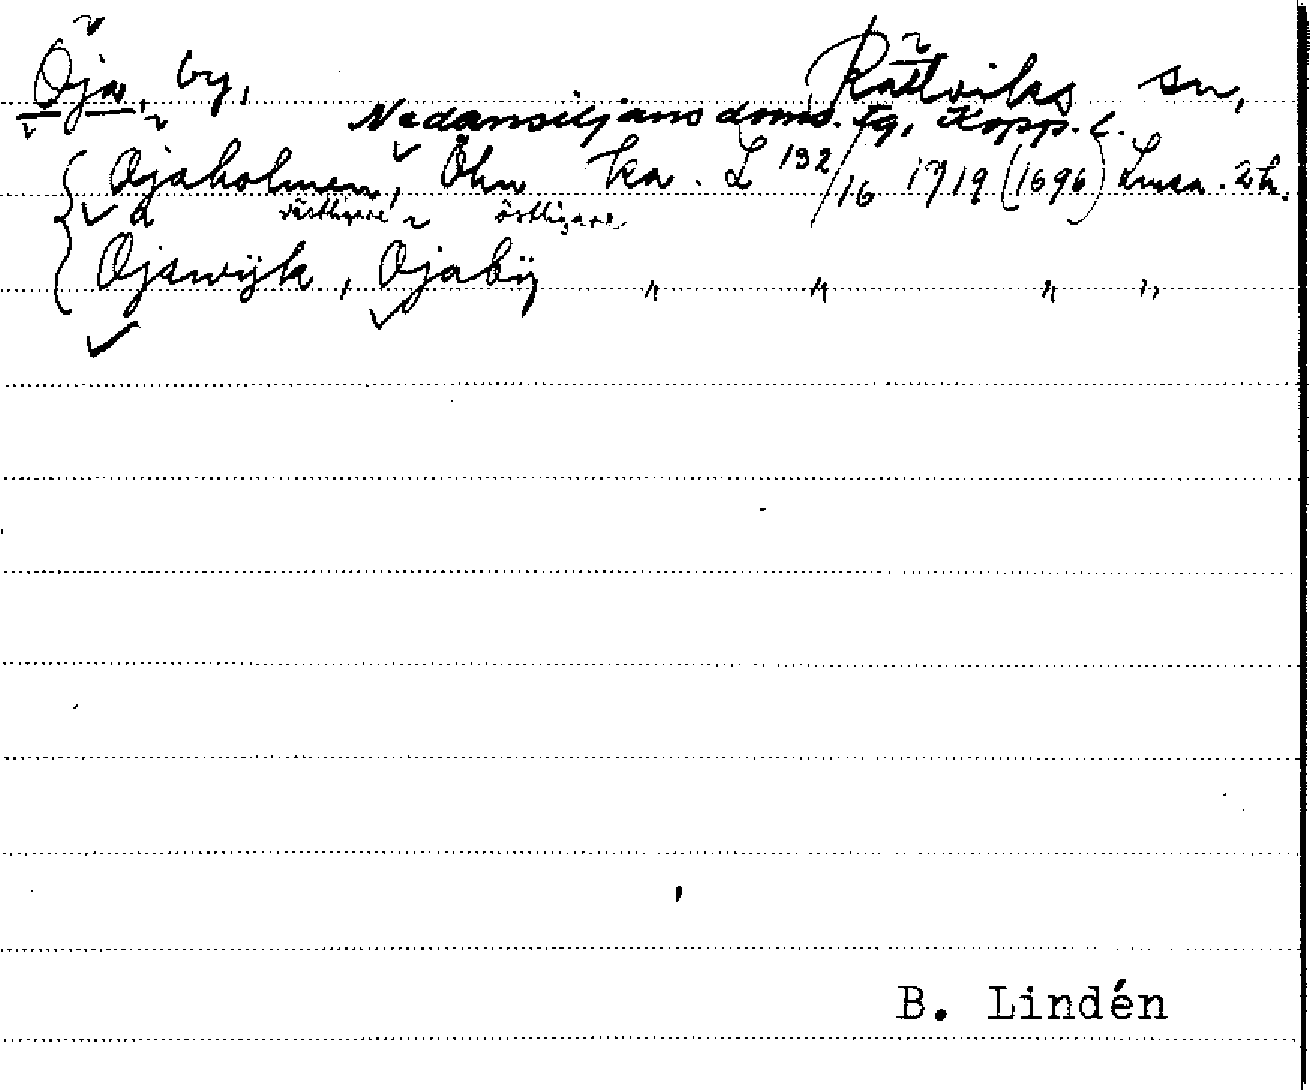 Öja, by, Rättviks sn,
Nedansiljans doms. tg, Kopp. l.
Öjaholmen, Öhn ka. L 192/16 1719 (1696) Lmsa. 2 h.
västligare östligare
Öjawijk, Öjabÿ " " " "
B. Lindén